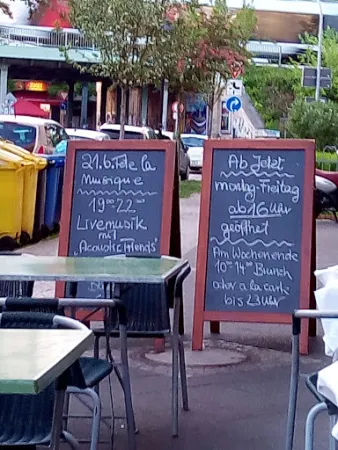 21.6. Fête la
Musique
19⁰⁰ 22⁰⁰
Livemusik
mit
"Acoustic friends"
Ab Jetzt
montag-Freitag
ab 16 Uhr
geöffnet
Am Wochenende
10⁰⁰-14⁰⁰ Brunch
oder a la carte
bis 23 Uhr